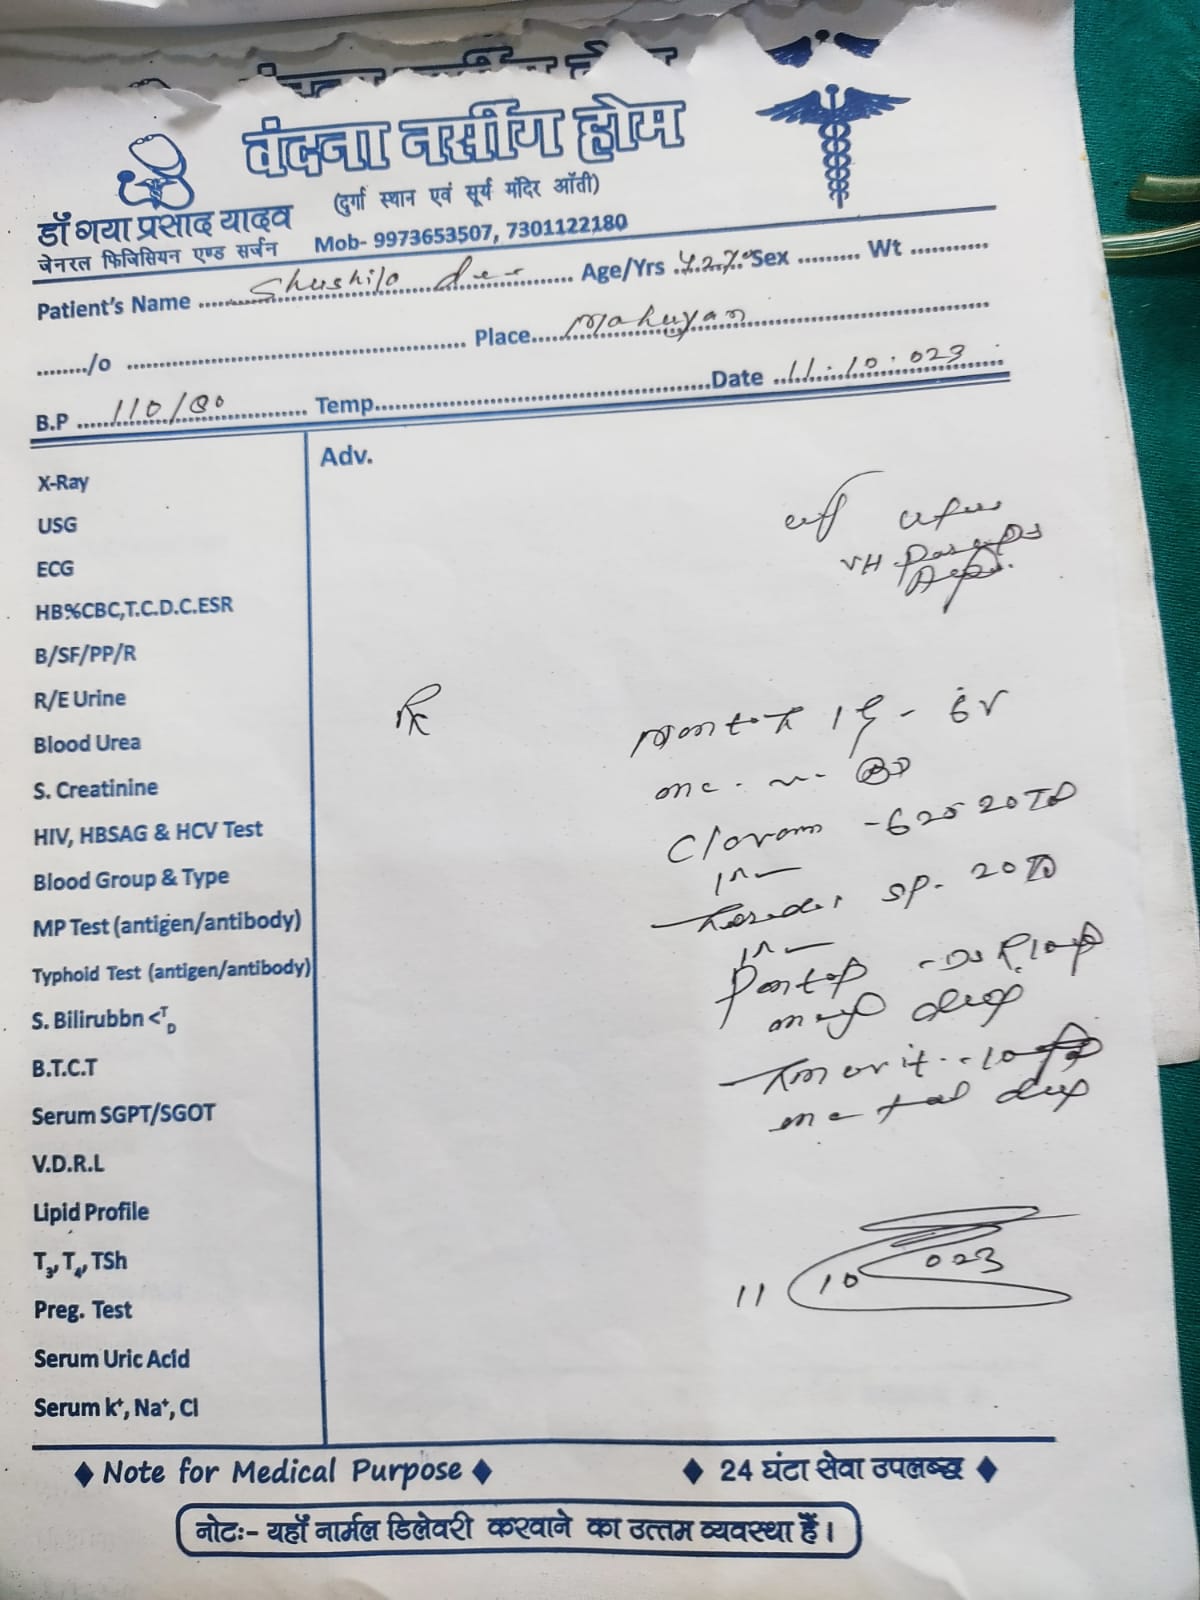 वंदना नर्सींग होम
(दुर्गा स्थान एवं सूर्य मंदिर ऑती)
डॉ गया प्रसाद यादव
जेनरल फिजिसियन एण्ड सर्जन
Mob- 9973653507, 7301122180
Patient's Name Shushila Age/Yrs Sex Wt
/o Place Mahuyan
B.P 110/80 Temp. Date 11.10.023
Adv.
X-Ray
USG
ECG
HB%CBC,T.C.D.C.ESR
B/SF/PP/R
R/E Urine
Blood Urea
S. Creatinine
HIV, HBSAG & HCV Test
Blood Group & Type
MP Test (antigen/antibody)
Typhoid Test (antigen/antibody)
S. Bilirubbn <T D
B.T.C.T
Serum SGPT/SGOT
V.D.R.L
Lipid Profile
T3, T4, TSh
Preg. Test
Serum Uric Acid
Serum k+, Na+, Cl
Rx
1g - iv
BD
Clavam - 625
SP -
Pantop - DSR
11 10 023
Note for Medical Purpose
24 घंटा सेवा उपलब्द्ध
नोटः- यहाँ नार्मल डिलेवरी करवाने का उत्तम व्यवस्था हैं।